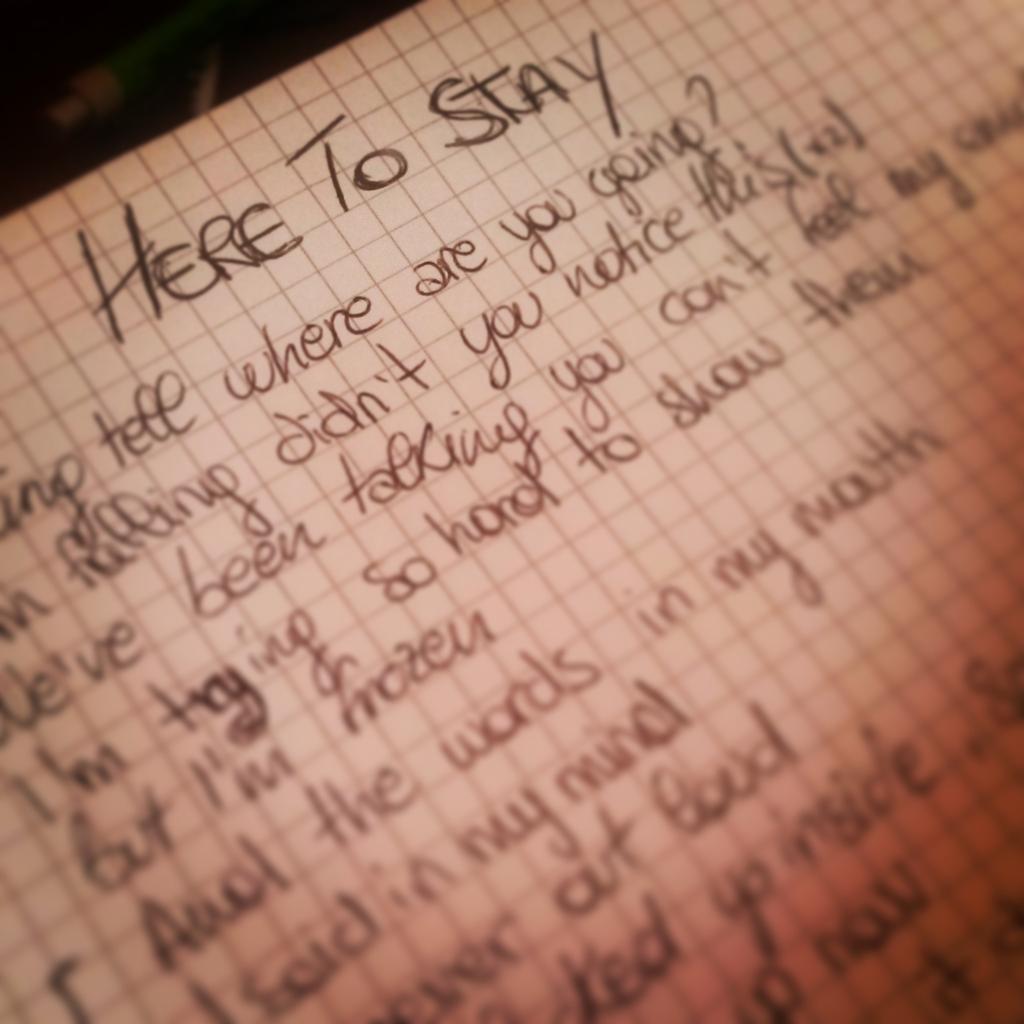 HERE TO STAY
tell where are you going?
falling didn't you notice this (x2)
We've been talking you can't feel my
I'm trying so hard to show them
but I'm frozen
And the words in my mouth
I said in my mind
never out loud
up inside
now
it